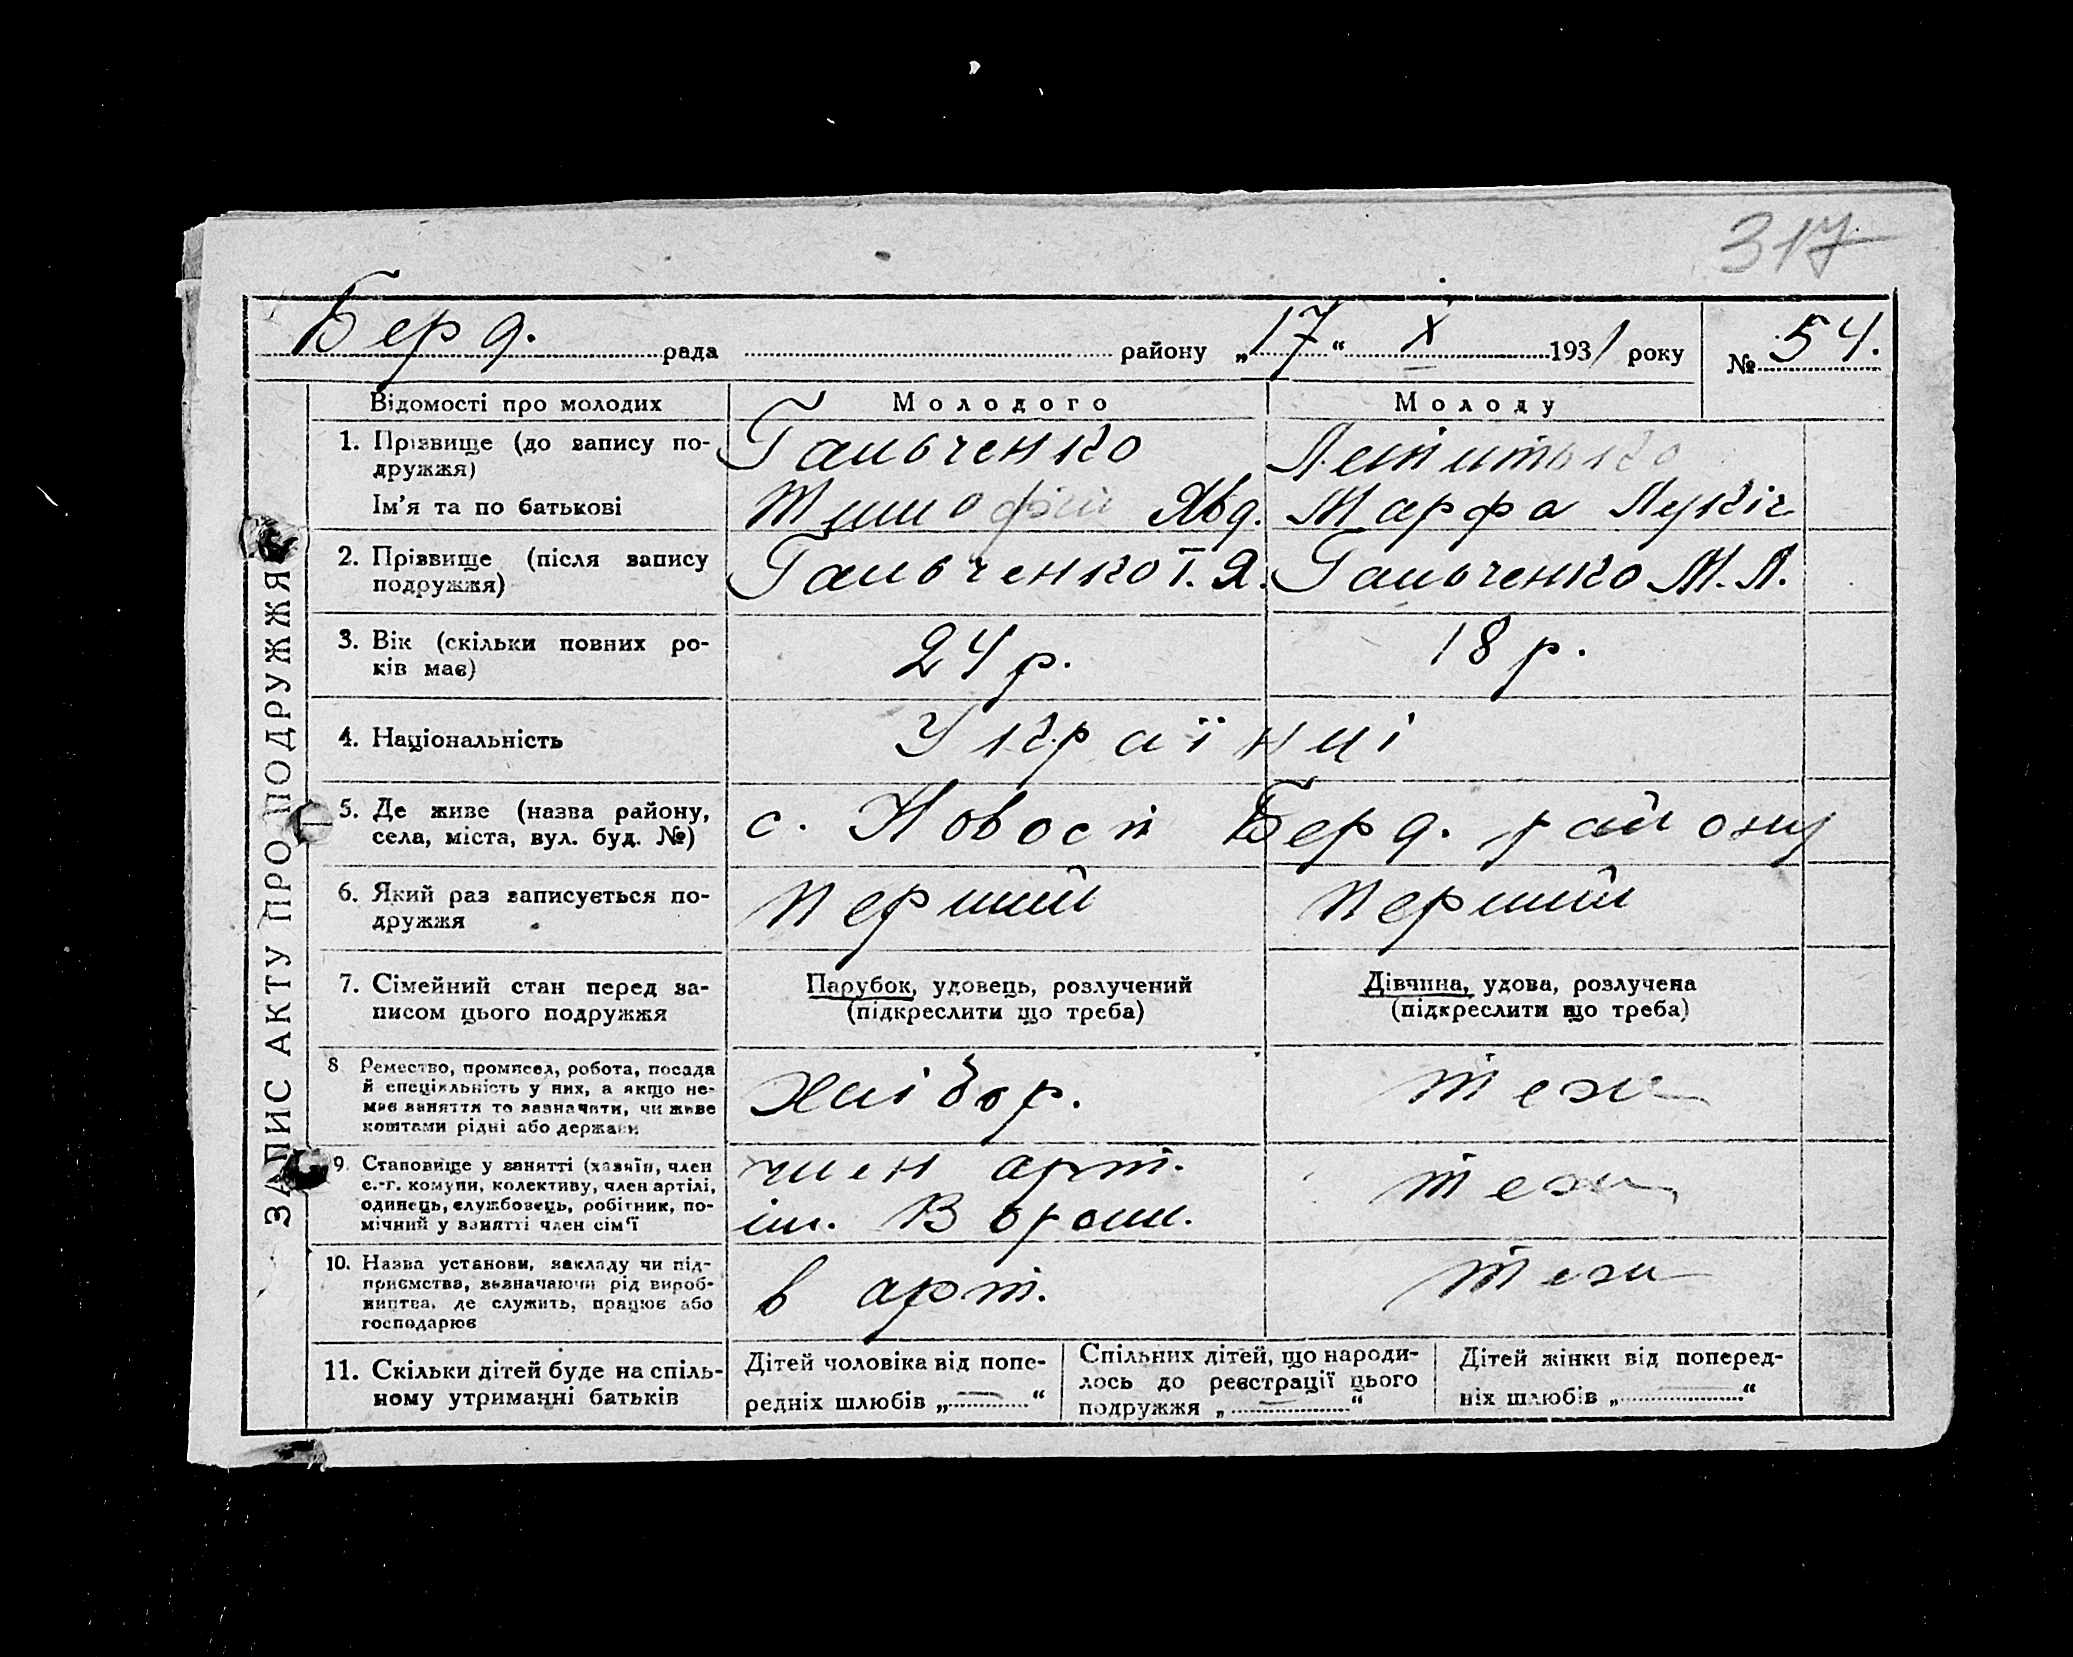 317
Берд. рада района „17“ X 1931 року № 54.
ЗАПИС АКТУ ПРО ПОДРУЖЖЯ
Відомості про молодих Молодого Молоду
1. Прізвище (до запису по- Гальченко
дружжя)
Ім'я та по батькові Тимофій Явд. Марфа Лукіг
2. Прізвище (після запису Гальченко Т. Я. Гальченко М. Л.
подружжя)
3. Вік (скільки повних ро- 24 р. 18 р.
ків має)
4. Національність Українці
5. Де живе (назва району, с. Новосп Берд. району
села, міста, вул. буд. №)
6. Який раз записується по- перший перший
дружжя
7. Сімейний стан перед за- Парубок, удовець, розлучений Дівчина, удова, розлучена
писом цього подружжя (підкреслити що треба) (підкреслити що треба)
8 Ремество, промисел, робота, посада
й спеціяльність у них, а якщо не- хлібор. теж
має заняття то зазначити, чи живе
коштами рідні або держави
9. Становище у занятті (хазяїн, член член арт.
с.-г. комуни, колективу, член артілі, теж
одинець, службовець, робітник, по- ім. Ворош.
мічний у занятті член сім'ї
10. Назва установи, закладу чи під-
приємства, зазначаючи рід вироб- в арт. теж
ництва, де служить, працює або
господарює
11. Скільки дітей буде на спіль- Дітей чоловіка від попе- Спільних дітей, що народи- Дітей жінки від поперед-
ному утриманні батьків редніх шлюбів „—“ лось до реєстрації цього ніх шлюбів „—“
подружжя „—“